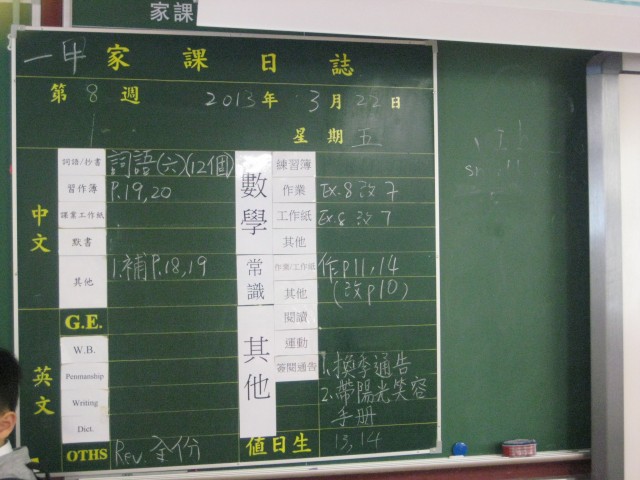 家課
一甲 家課日誌
第 8 週 2013 年 3 月 22 日
星期 五
中文
詞語/抄書 詞語(六)(12個)
習作簿 P.19,20
默書
其他 1.補P.18,19
英文
G.E.
W.B.
Penmanship
Writing
Dict.
OTHS Rev. 全份
數學
練習簿
作業 Ex.8 改 7
工作紙 Ex.8 改 7
其他
常識
作業/工作紙 作p11,14
其他 (改p10)
其他
閱讀
運動
簽閱通告 1.換季通告
2.帶陽光笑容
手册
值日生 13,14